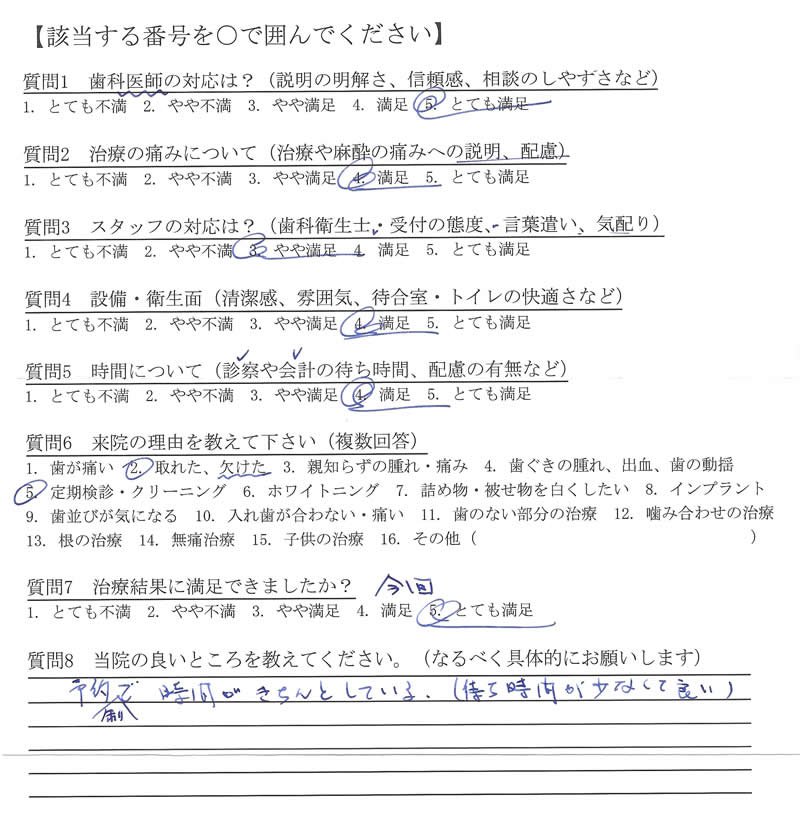 【該当する番号を〇で囲んでください】
質問1 歯科医師の対応は？（説明の明解さ、信頼感、相談のしやすさなど）
1. とても不満 2. やや不満 3. やや満足 4. 満足 5. とても満足
質問2 治療の痛みについて（治療や麻酔の痛みへの説明、配慮）
1. とても不満 2. やや不満 3. やや満足 4. 満足 5. とても満足
質問3 スタッフの対応は？（歯科衛生士・受付の態度、言葉遣い、気配り）
1. とても不満 2. やや不満 3. やや満足 4 満足 5. とても満足
質問4 設備・衛生面（清潔感、雰囲気、待合室・トイレの快適さなど）
1. とても不満 2. やや不満 3. やや満足 4. 満足 5. とても満足
質問5 時間について（診察や会計の待ち時間、配慮の有無など）
1. とても不満 2. やや不満 3. やや満足 4. 満足 5. とても満足
質問6 来院の理由を教えて下さい（複数回答）
1. 歯が痛い 2. 取れた、欠けた 3. 親知らずの腫れ・痛み 4. 歯ぐきの腫れ、出血、歯の動揺
5. 定期検診・クリーニング 6. ホワイトニング 7. 詰め物・被せ物を白くしたい 8. インプラント
9. 歯並びが気になる 10. 入れ歯が合わない・痛い 11. 歯のない部分の治療 12. 噛み合わせの治療
13. 根の治療 14. 無痛治療 15. 子供の治療 16. その他（ ）
質問7 治療結果に満足できましたか？ 今回
1. とても不満 2. やや不満 3. やや満足 4. 満足 5. とても満足
質問8 当院の良いところを教えてください。（なるべく具体的にお願いします）
予約制で 時間がきちんとしている.（待ち時間が少なくて良い）